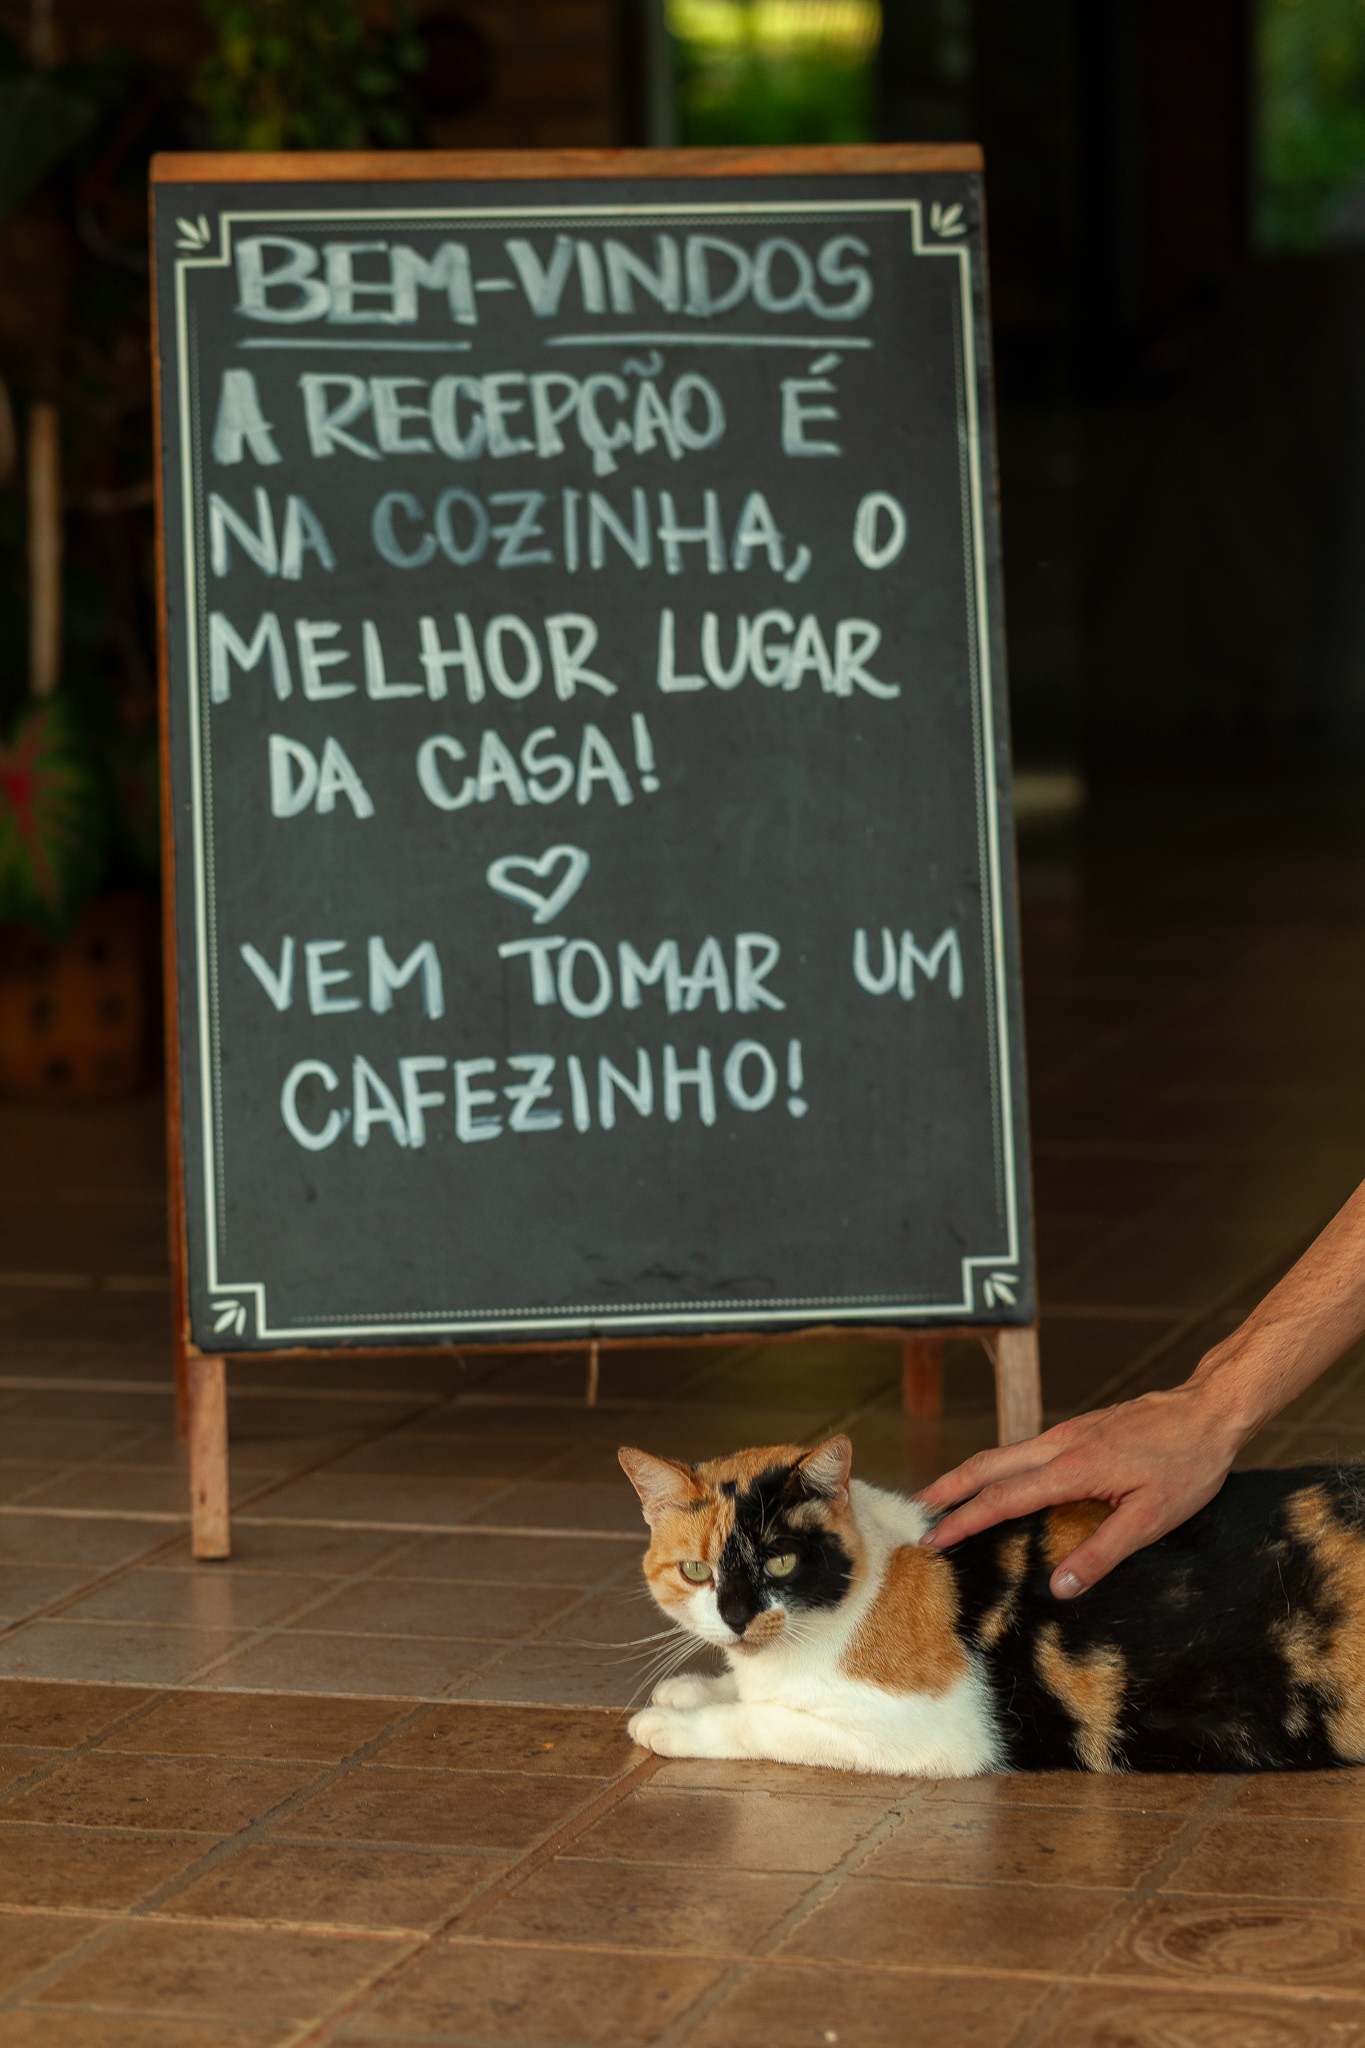 BEM-VINDOS
A RECEPÇÃO É
NA COZINHA, O
MELHOR LUGAR
DA CASA!
VEM TOMAR UM
CAFEZINHO!